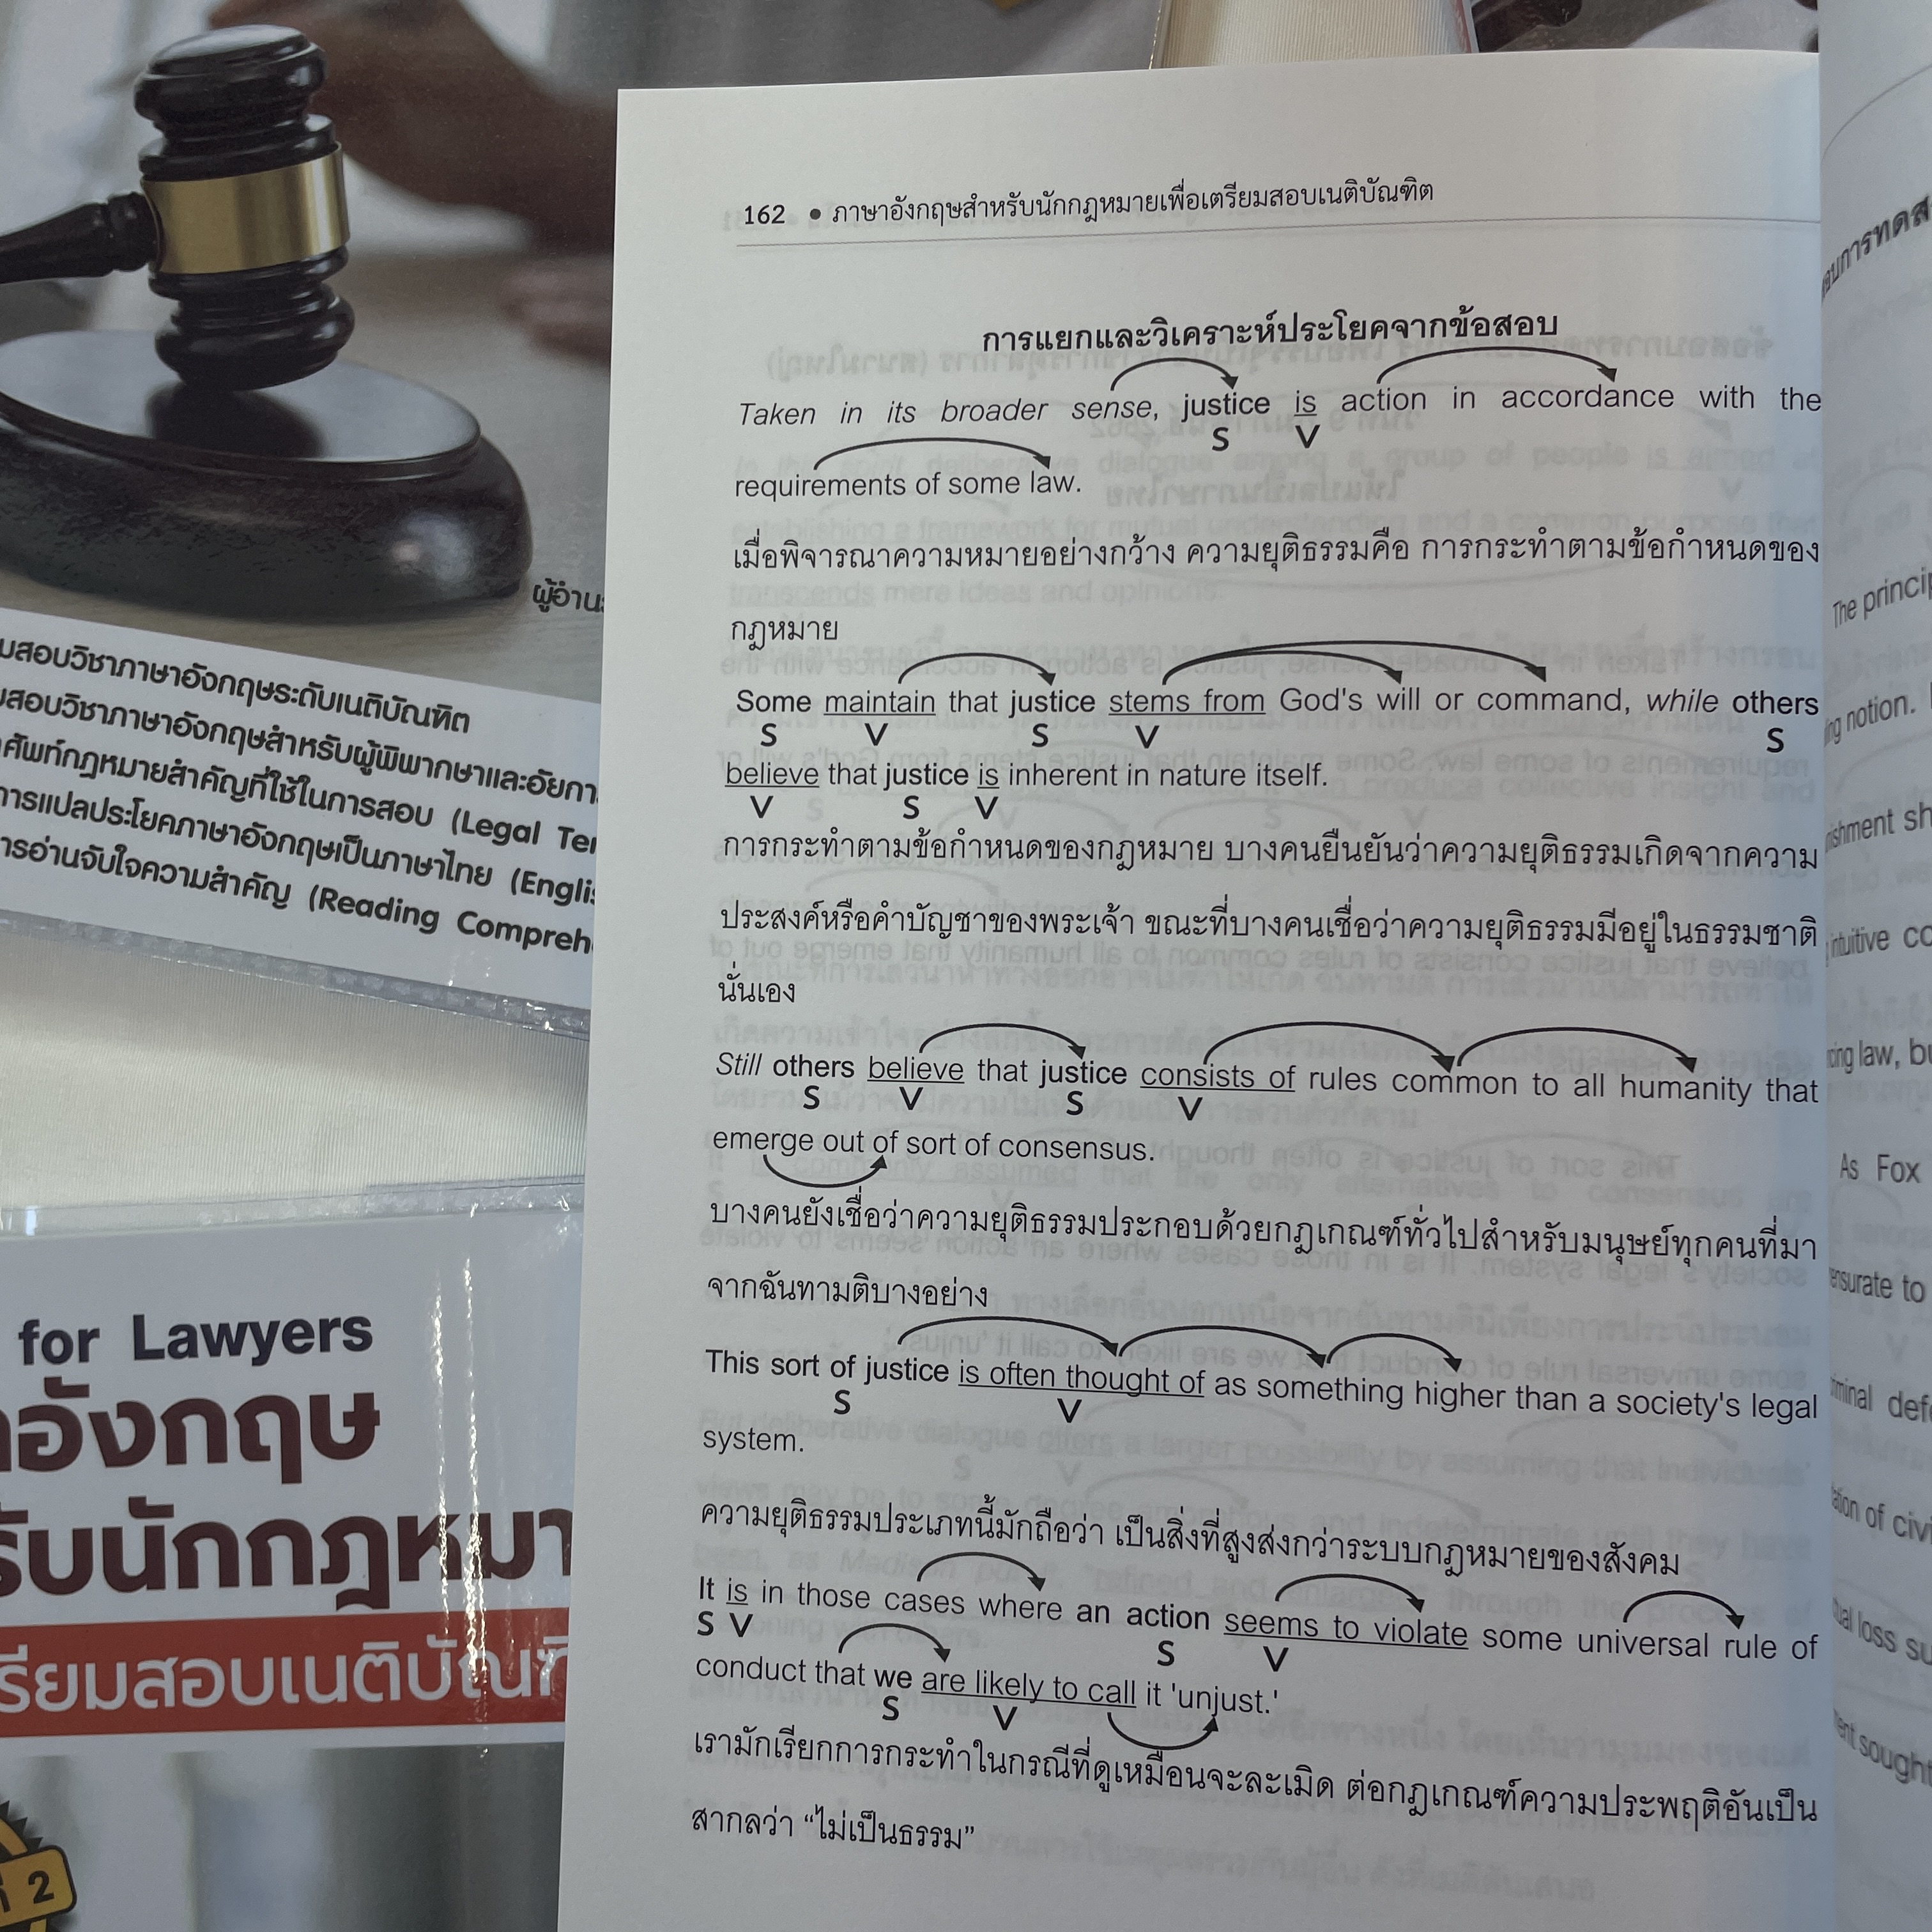 162 • ภาษาอังกฤษสำหรับนักกฎหมายเพื่อเตรียมสอบเนติบัณฑิต
การแยกและวิเคราะห์ประโยคจากข้อสอบ
Taken in its broader sense, justice is action in accordance with the
S V
requirements of some law.
เมื่อพิจารณาความหมายอย่างกว้าง ความยุติธรรมคือ การกระทำตามข้อกำหนดของ
กฎหมาย
Some maintain that justice stems from God's will or command, while others
S V S V S
believe that justice is inherent in nature itself.
V S V
การกระทำตามข้อกำหนดของกฎหมาย บางคนยืนยันว่าความยุติธรรมเกิดจากความ
ประสงค์หรือคำบัญชาของพระเจ้า ขณะที่บางคนเชื่อว่าความยุติธรรมมีอยู่ในธรรมชาติ
นั่นเอง
Still others believe that justice consists of rules common to all humanity that
S V S V
emerge out of sort of consensus.
บางคนยังเชื่อว่าความยุติธรรมประกอบด้วยกฎเกณฑ์ทั่วไปสำหรับมนุษย์ทุกคนที่มา
จากฉันทามติบางอย่าง
This sort of justice is often thought of as something higher than a society's legal
S V
system.
ความยุติธรรมประเภทนี้มักถือว่า เป็นสิ่งที่สูงส่งกว่าระบบกฎหมายของสังคม
It is in those cases where an action seems to violate some universal rule of
S V S V
conduct that we are likely to call it 'unjust.'
S V
เรามักเรียกการกระทำในกรณีที่ดูเหมือนจะละเมิด ต่อกฎเกณฑ์ความประพฤติอันเป็น
สากลว่า “ไม่เป็นธรรม”
ผู้อำน
มสอบวิชาภาษาอังกฤษระดับเนติบัณฑิต
มสอบวิชาภาษาอังกฤษสำหรับผู้พิพากษาและอัยกา
ศัพท์กฎหมายสำคัญที่ใช้ในการสอบ (Legal Te
การแปลประโยคภาษาอังกฤษเป็นภาษาไทย (Englis
ารอ่านจับใจความสำคัญ (Reading Compreh
for Lawyers
อังกฤษ
รับนักกฎหมา
รียมสอบเนติบัณฑิ
2
The princip
notion.
shment sh
intuitive co
law, bu
As Fox
surate to
minal def
of civi
loss su
sought